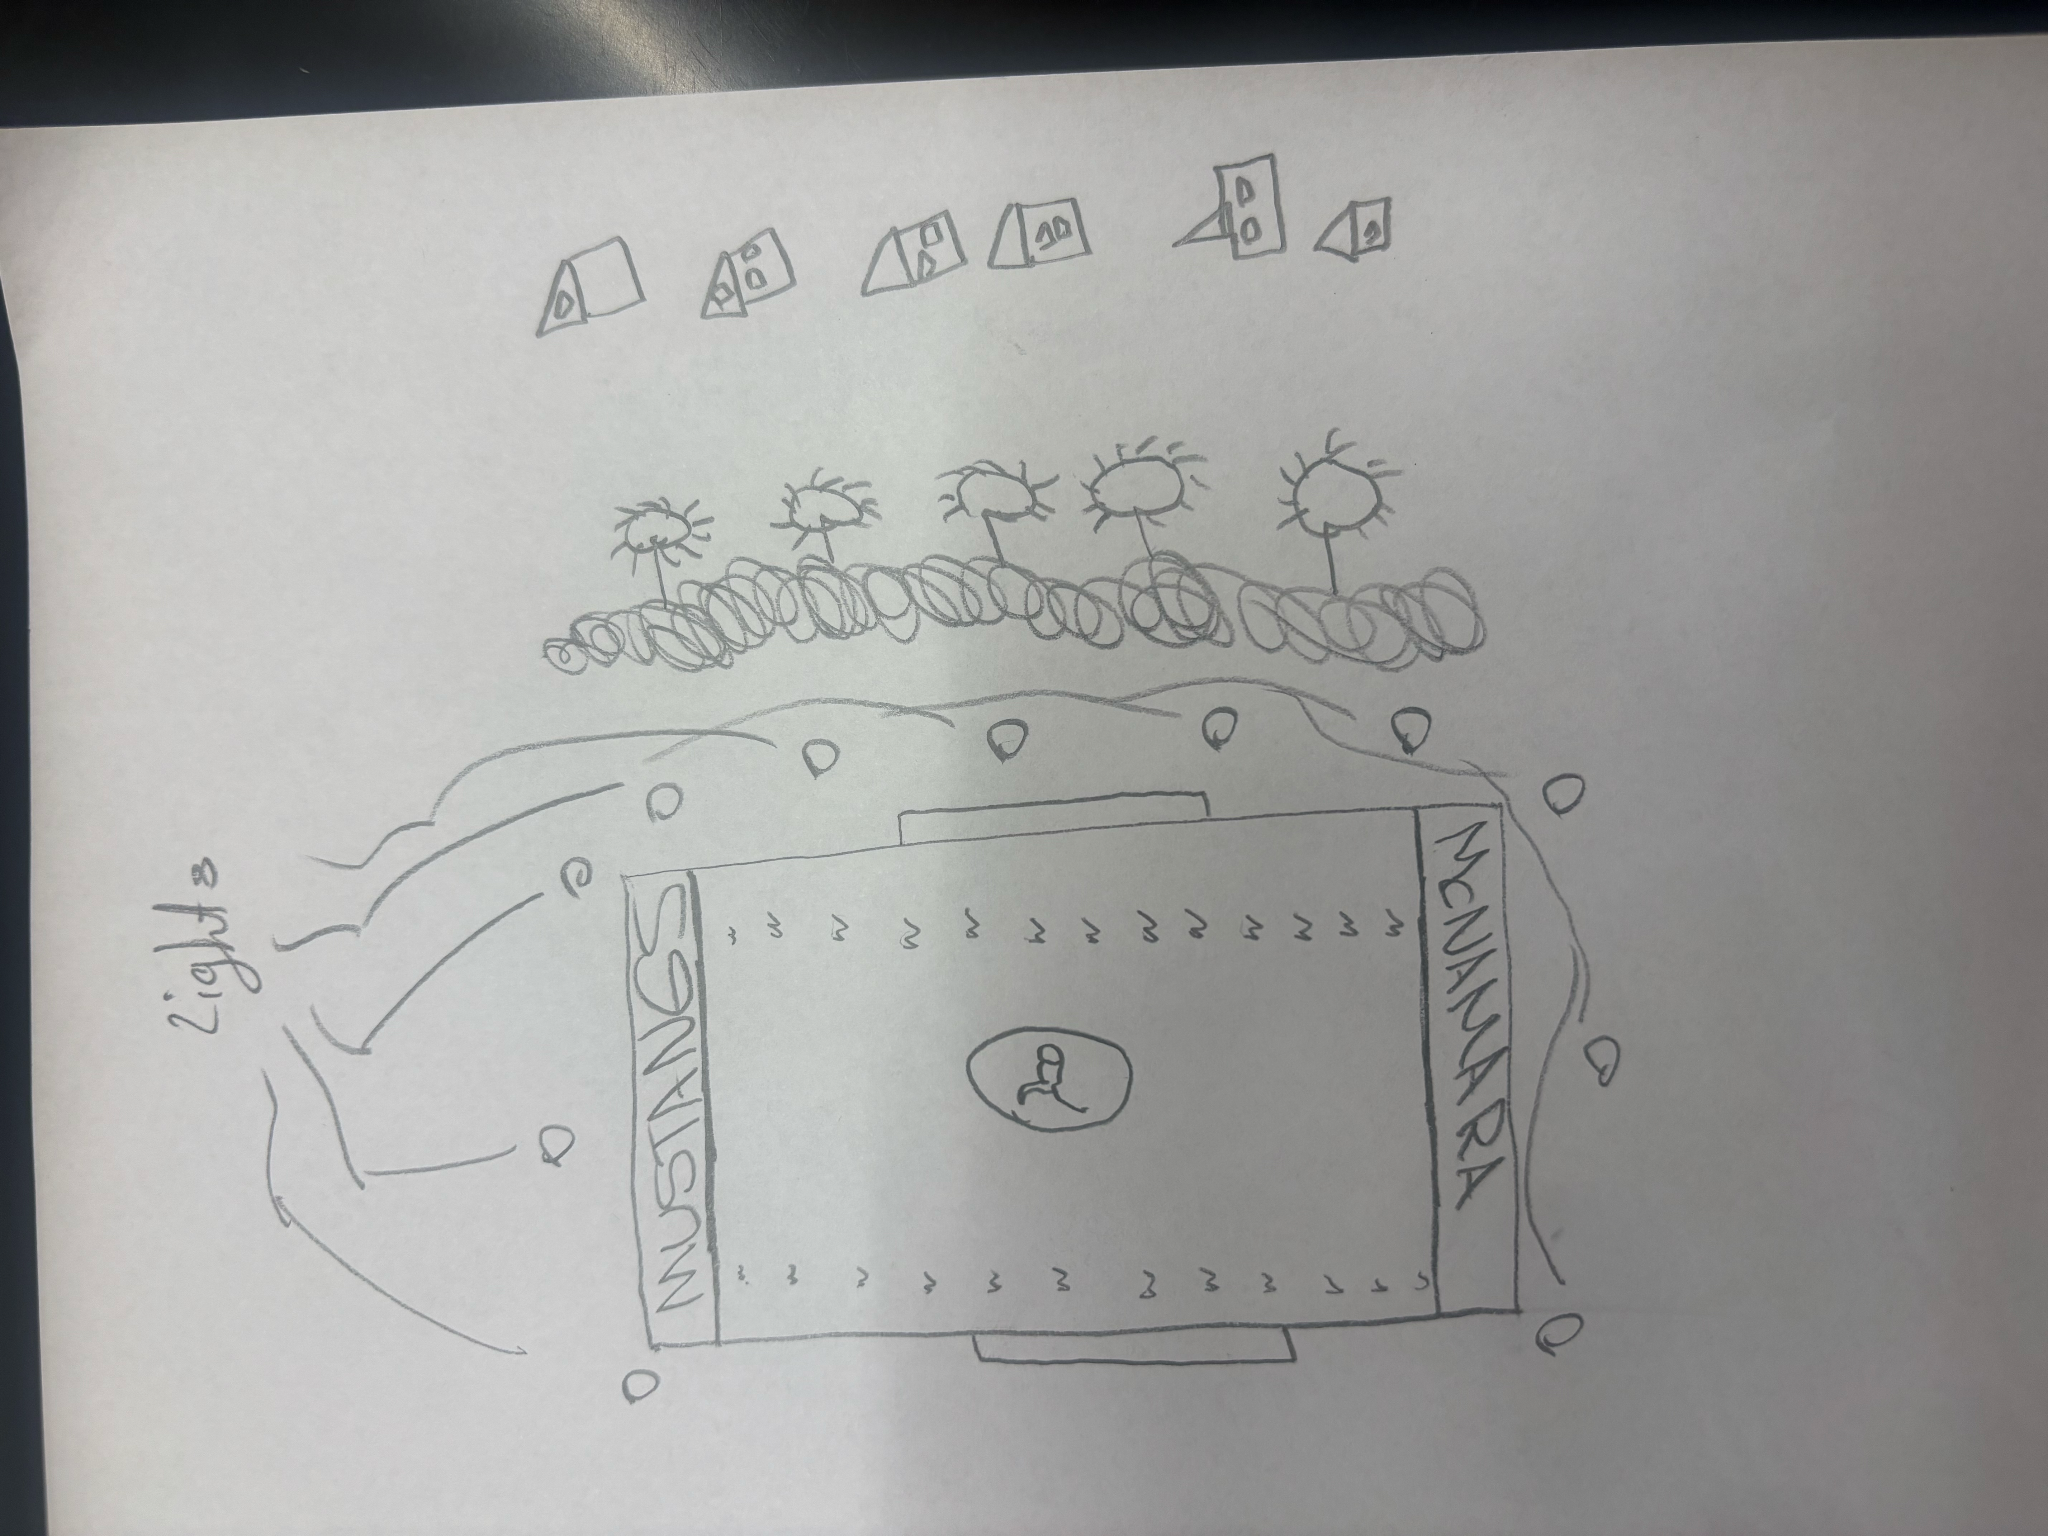 Lights
MUSTANGS
MCNAMARA